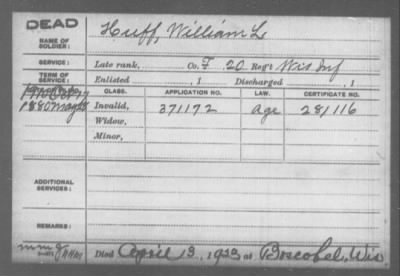 DEAD
NAME OF SOLDIER: Huff, William L
SERVICE: Late rank, Co. F 20 Reg't Wis Inf
TERM OF SERVICE: Enlisted , 1 Discharged , 1
CLASS. APPLICATION NO. LAW. CERTIFICATE NO.
1880 May Invalid, 371172 age 281116
Widow,
Minor,
ADDITIONAL SERVICES:
REMARKS:
Died April 13, 1923 at Boscobel, Wis